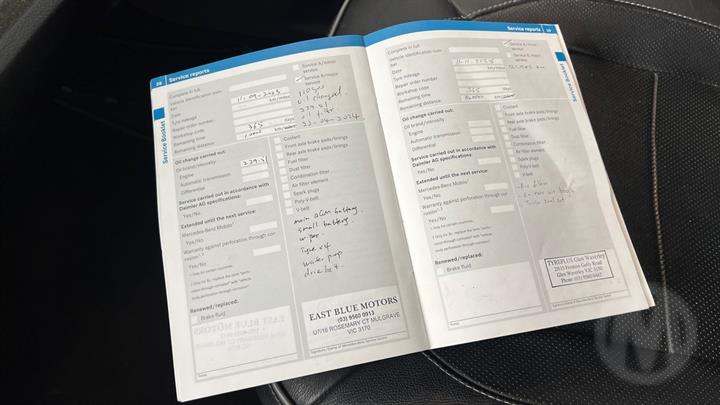 28 Service reports
Complete in full
Vehicle identification num-
ber
11-09-2023
Date
km/miles
Tyre mileage
Repair order number
Workshop code
365 days
Remaining time
km/miles
Remaining distance
Service A/minor
service
Service B/major
service
oil changed
229.51
oil filter
22-04-2024
Oil change carried out:
Oil brand/viscosity
229.51
Engine
Automatic transmission
Differential
Service carried out in accordance with
Daimler AG specifications:
Yes/No
Extended until the next service:
Mercedes-Benz Mobilo
Yes/No
Warranty against perforation through cor-
rosion
Yes/No
Renewed/replaced:
Brake fluid
Coolant
Front axle brake pads/linings
Rear axle brake pads/linings
Fuel filter
Dust filter
Combination filter
Air filter element
Spark plugs
Poly-V-belt
V-belt
main AGM battery
small battery
wiper
Tyre x4
water pump
drive belt
EAST BLUE MOTORS
(03) 9560 0913
U7/16 ROSEMARY CT MULGRAVE
VIC 3170
Signature/Stamp of Mercedes-Benz Service Centre
Notes
Service Booklet
Service reports 29
Complete in full
Vehicle identification num-
ber
Date
km/miles
Tyre mileage
Repair order number
Workshop code
365 days
Remaining time
km/miles
Remaining distance
Service A/minor
service
Service B/major
service
Oil change carried out:
Oil brand/viscosity
Engine
Automatic transmission
Differential
Service carried out in accordance with
Daimler AG specifications:
Yes/No
Extended until the next service:
Mercedes-Benz Mobilo
Yes/No
Warranty against perforation through cor-
rosion
Yes/No
Renewed/replaced:
Brake fluid
Coolant
Front axle brake pads/linings
Rear axle brake pads/linings
Fuel filter
Dust filter
Combination filter
Air filter element
Spark plugs
Poly-V-belt
V-belt
TYREPLUS Glen Waverley
Glen Waverley VIC 3150
Signature/Stamp of Mercedes-Benz Service Centre
Notes
Service Booklet